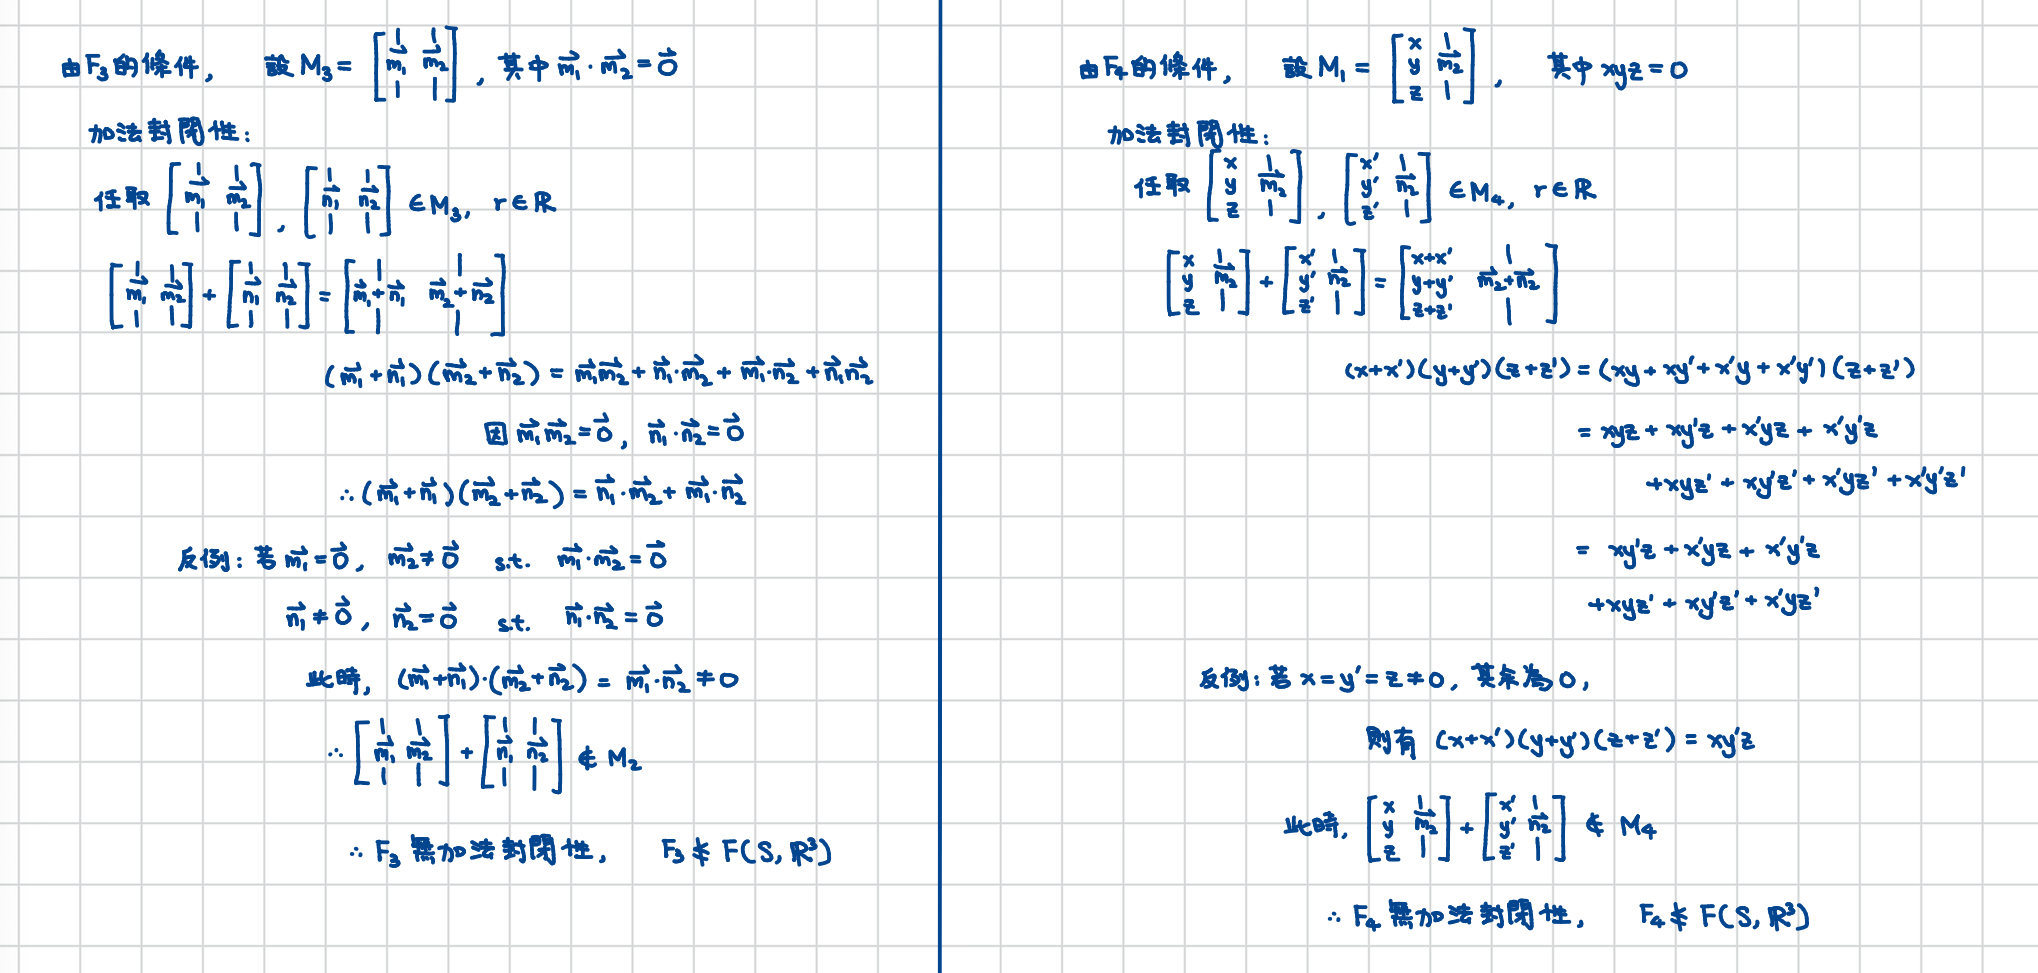 由F₃的條件, 設 M₃ = [m⃗₁ m⃗₂], 其中 m⃗₁·m⃗₂ = 0⃗
加法封閉性:
任取 [m⃗₁ m⃗₂], [n⃗₁ n⃗₂] ∈ M₃, r∈ℝ
[m⃗₁ m⃗₂] + [n⃗₁ n⃗₂] = [m⃗₁+n⃗₁ m⃗₂+n⃗₂]
(m⃗₁+n⃗₁)(m⃗₂+n⃗₂) = m⃗₁m⃗₂ + n⃗₁·m⃗₂ + m⃗₁·n⃗₂ + n⃗₁n⃗₂
因 m⃗₁m⃗₂ = 0⃗, n⃗₁·n⃗₂ = 0⃗
∴ (m⃗₁+n⃗₁)(m⃗₂+n⃗₂) = n⃗₁·m⃗₂ + m⃗₁·n⃗₂
反例: 若 m⃗₁ = 0⃗, m⃗₂ ≠ 0⃗ s.t. m⃗₁·m⃗₂ = 0⃗
n⃗₁ ≠ 0⃗, n⃗₂ = 0⃗ s.t. n⃗₁·n⃗₂ = 0⃗
此時, (m⃗₁+n⃗₁)·(m⃗₂+n⃗₂) = m⃗₁·n⃗₂ ≠ 0
∴ [m⃗₁ m⃗₂] + [n⃗₁ n⃗₂] ∉ M₂
∴ F₃ 無加法封閉性, F₃ ≰ F(S, ℝ³)
由F₄的條件, 設 M₁ = [x y z m⃗₂], 其中 xyz = 0
加法封閉性:
任取 [x y z m⃗₂], [x' y' z' n⃗₂] ∈ M₄, r∈ℝ
[x y z m⃗₂] + [x' y' z' n⃗₂] = [x+x' y+y' z+z' m⃗₂+n⃗₂]
(x+x')(y+y')(z+z') = (xy + xy' + x'y + x'y')(z+z')
= xyz + xy'z + x'yz + x'y'z
+xyz' + xy'z' + x'yz' + x'y'z'
= xy'z + x'yz + x'y'z
+xyz' + xy'z' + x'yz'
反例: 若 x = y' = z ≠ 0, 其余為 0,
則有 (x+x')(y+y')(z+z') = xy'z
此時, [x y z m⃗₂] + [x' y' z' n⃗₂] ∉ M₄
∴ F₄ 無加法封閉性, F₄ ≰ F(S, ℝ³)